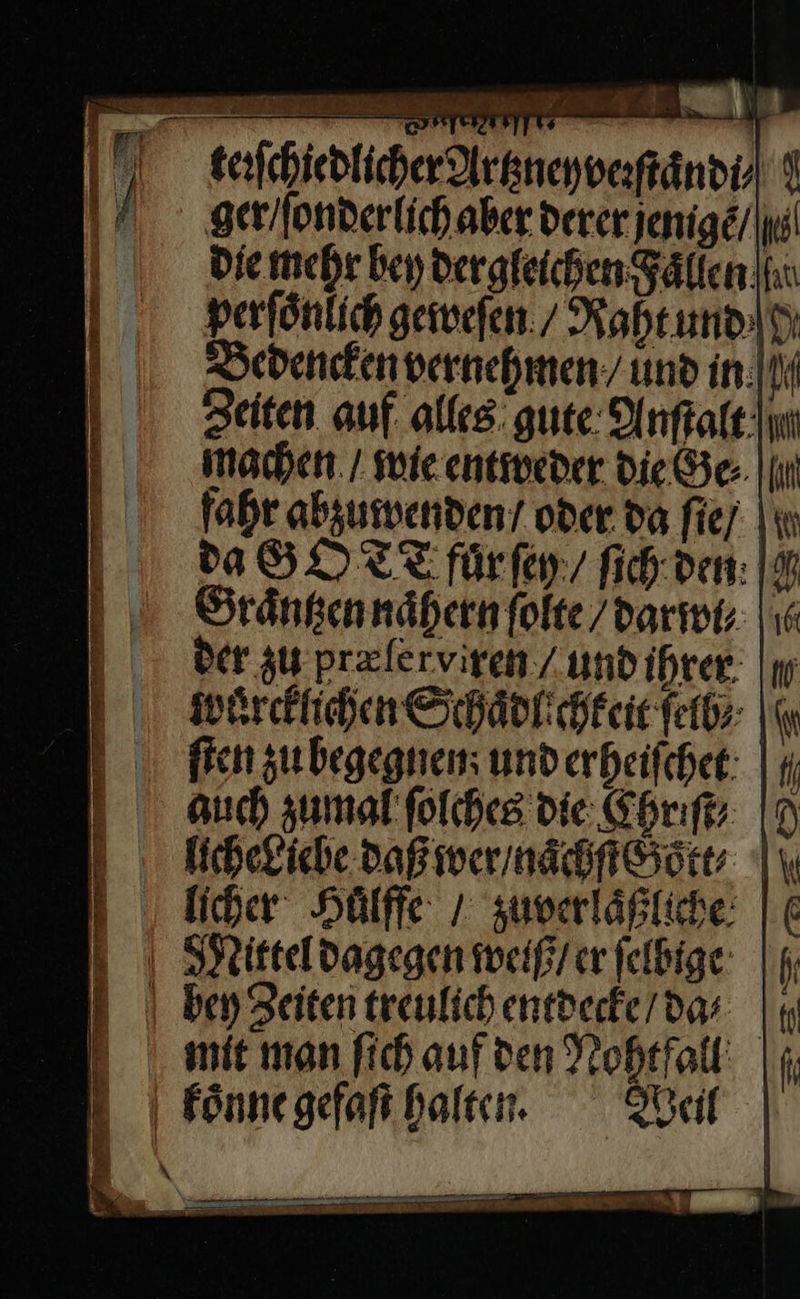 terſchiedlicher Artzneyverſtaͤndi⸗
ger/ſonderlich aber derer jenigẽ/
die mehr bey dergleichen Faͤllen
perſoͤnlich geweſen / Raht und
Bedencken vernehmen / und in
Zeiten auf alles gute Anſtalt
machen / wie entweder die Ge⸗
fahr abzuwenden / oder da ſie /
da GOTT fuͤr ſey / ſich den
Graͤntzen naͤhern ſolte / darwi⸗
der zu præſerviren / und ihrer
wuͤrcklichen Schaͤdlichkeit ſelb⸗
ſten zu begegnen; und erheiſchet
auch zumal ſolches die Chriſt⸗
liche Liebe daß wer/naͤchſt Goͤtt⸗
licher Huͤlffe / zuverlaͤßliche
Mittel dagegen weiß/ er ſelbige
bey Zeiten treulich entdecke / da⸗
mit man ſich auf den Nohtfall
koͤnne gefaſt halten. Weil